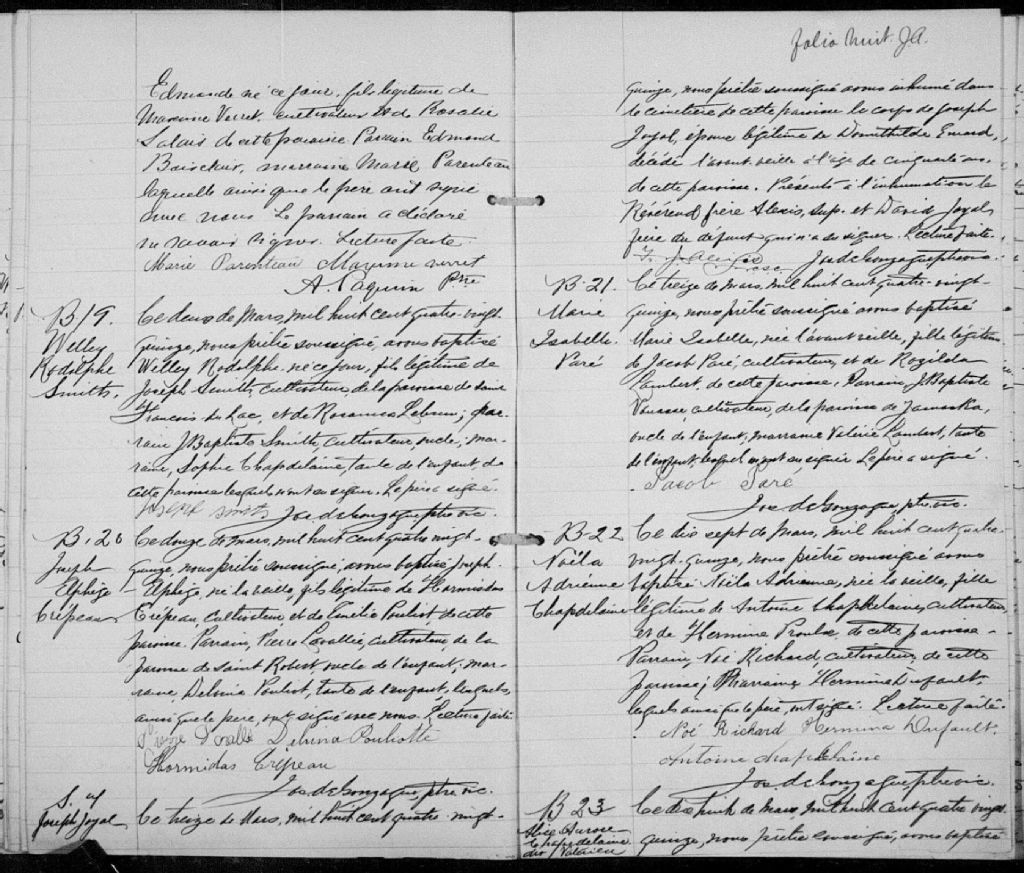 Edmond né ce jour, fils légitime de
Maxime Verret, cultivateur et de Rosalie
Salois de cette paroisse Parrain Edmond
marraine Marie Parenteau
laquelle ainsi que le père ont signé
avec nous. Le parrain a déclaré
ne savoir signer. Lecture faite.
Marie Parenteau Maxime verret
A. Paquin Ptre
B 19.
Willey
Rodolphe
Smith,
Ce deux de Mars, mil huit cent quatre-vingt
quinze, nous prêtre soussigné, avons baptisé
Willey Rodolphe, né ce jour, fils légitime de
Joseph Smith, cultivateur, de la paroisse de Saint
François du Lac, et de Rosanna Lebrun; par-
rain J. Baptiste Smith, cultivateur, oncle, mar-
raine, Sophie Chapdelaine, tante de l'enfant de
cette paroisse lesquels n'ont su signer. Le père a signé.
Joseph Smith Jos. de Gonzague, ptre vic.
B. 20
Joseph
Elphège
Crépeau
Ce douze de mars, mil huit cent quatre vingt-
quinze, nous prêtre soussigné, avons baptisé Joseph-
Elphège, né la veille, fils légitime de Hormisdas
Crépeau, cultivateur, et de Emélie Pouliot de cette
paroisse. Parrain, Pierre Lavallée, cultivateur, de la
paroisse de Saint Robert, oncle de l'enfant; mar-
raine, Delvina Pouliot, tante de l'enfant, lesquels,
ainsi que le père, ont signé avec nous. Lecture faite.
Delvina Pouliotte
Hormidas Crépeau
Jos. de Gonzague, ptre vic.
S. of
Joseph Joyal
Ce treize de Mars, mil huit cent quatre-vingt-
folio huit. J.A.
quinze, nous prêtre soussigné avons inhumé dans
le cimetière de cette paroisse le corps de Joseph
Joyal, époux légitime de Domithilde Emard,
décédé l'avant veille à l'âge de cinquante ans,
de cette paroisse. Présents à l'inhumation le
Révérend frère Alexis, Sup. et David Joyal
frère du défunt qui n'a su signer. Lecture faite.
Jos. de Gonzague ptre vic.
B. 21.
Marie
Isabelle.
Paré
Ce treize de mars, mil huit cent quatre-vingt-
quinze, nous prêtre soussigné avons baptisé
Marie Isabelle, née l'avant veille, fille légitime
de Jacob Paré, cultivateur, et de Rozilda
Lambert, de cette paroisse. Parrain, J. Baptiste
Vanasse cultivateur, de la paroisse de Yamaska,
oncle de l'enfant, marraine Valérie Lambert, tante
de l'enfant, lesquels n'ont su signer. Le père a signé.
Jacob Paré
Jos. de Gonzague, ptre, vic.
B-22
Noëla
Adrienne
Chapdelaine
Ce dix sept de Mars, mil huit cent quatre-
vingt-quinze, nous prêtre soussigné avons
baptisé Noëla Adrienne, née la veille, fille
légitime de Antoine Chapdelaine, cultivateur,
et de Hermine Proulx, de cette paroisse.
Parrain, Noé Richard, cultivateur, de cette
paroisse; Marraine, Hermina Dufault,
lesquels ainsi que le père, ont signé. Lecture faite.
Noé Richard Hermina Dufault.
Antoine chapdelaine
Jos. de Gonzague ptre vic.
B 23
Alice Aurore
Chapdelaine
dit Valérien
Ce dix huit de Mars, mil huit cent quatre vingt
quinze, nous prêtre soussigné, avons baptisé